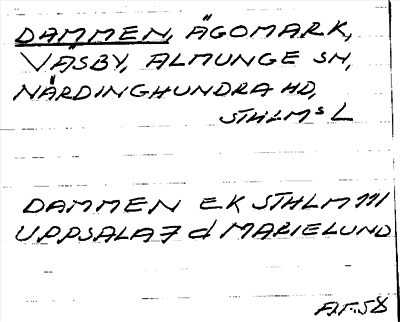 DAMMEN, ÄGOMARK,
VÄSBY, ALMUNGE SN,
NÄRDINGHUNDRA HD,
STHLMS L
DAMMEN EK STHLM 111
UPPSALA 7 d MARIELUND
A.F. 58